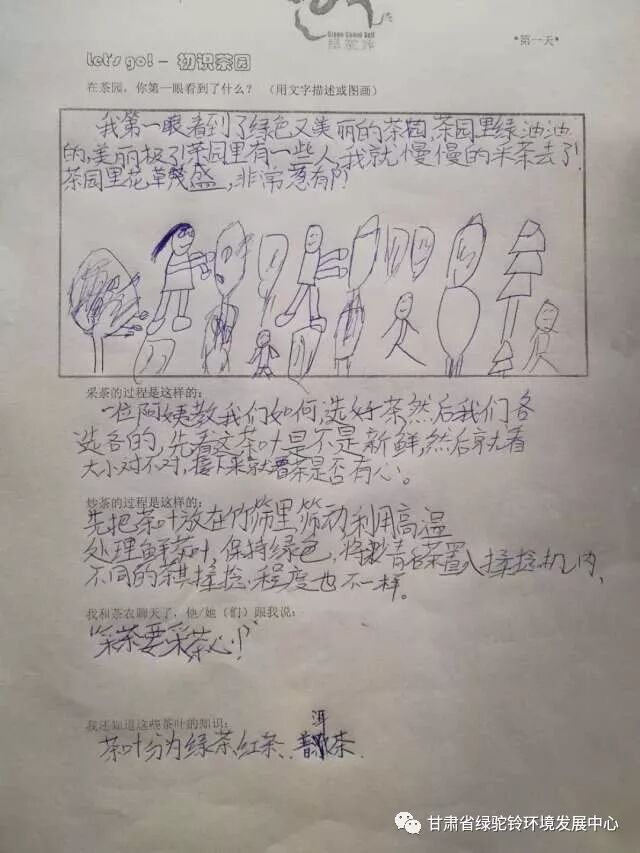 Green Camel Bell
绿驼铃
•第一天•
Let's go! - 初识茶园
在茶园，你第一眼看到了什么？ （用文字描述或图画）
我第一眼看到了绿色又美丽的茶园,茶园里绿油油
的,美丽极了!茶园里有一些人,我就慢慢的采茶去了!
茶园里花草茂盛,非常葱有
采茶的过程是这样的:
一位阿姨教我们如何选好茶,然后我们各
选各的,先看这茶叶是不是新鲜,然后就看
大小对不对,接下来就看茶是否有心。
炒茶的过程是这样的:
先把茶叶放在竹筛里筛动,利用高温
处理鲜茶叶,保持绿色,将青茶置入揉捻机内,
不同的茶其揉捻程度也不一样。
我和茶农聊天了，他/她（们）跟我说:
"采茶要采茶心!"
我还知道这些茶叶的知识:
茶叶分为绿茶、红茶、普洱茶.
甘肃省绿驼铃环境发展中心